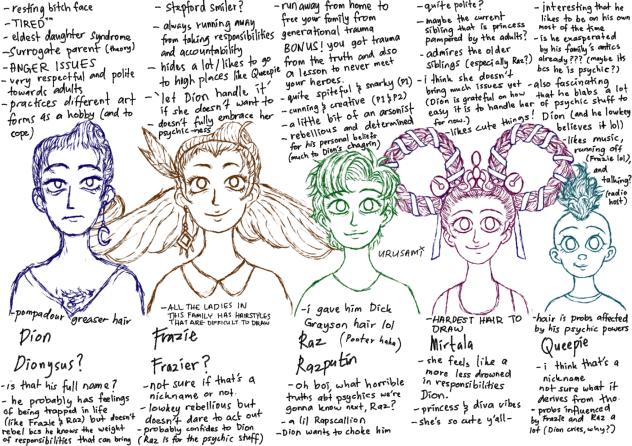 - resting bitch face
- TIRED™
- eldest daughter syndrome
- surrogate parent (Auory)
- ANGER ISSUES
- very respectful and polite
towards adults
- practices different art
forms as a hobby (and to
cope)
- stepford smiler?
- always running away
from taking responsibilities
and accountability
- hides a lot/likes to go
to high places like Queepie
- 'let Dion handle it'
if she doesn't want to
- doesn't fully embrace her
psychic-ness
run away from home to
free your family from
generational trauma
BONUS! you got trauma
from the truth and also
a lesson to never meet
your heroes.
- quite spiteful & snarky (P1)
- cunning & creative (P1&P2)
- a little bit of an arsonist
- rebellious and determined
for his personal beliefs
(much to Dion's chagrin)
- quite polite?
- maybe the current
sibling that is princess
pampered by the adults?
- admires the older
siblings (especially Raz?)
- i think she doesn't
bring much issues yet
(Dion is grateful on how
easy it is to handle her
for now.)
- likes cute things!
- interesting that he
likes to be on his own
most of the time
- is he exasperated
by his family's antics
already??? (maybe its
bcs he is psychic?)
- also fascinating
that he blabs a lot
of psychic stuff to
Dion (and he lowkey
believes it lol)
- likes music,
running off
(Frazie lol),
and
talking?
(radio
host)
URUSAMI*
- pompadour greaser hair
Dion
Dionysus?
- is that his full name?
- he probably has feelings
of being trapped in life
(like Frazie & Raz) but doesn't
rebel bcs he knows the weight
of responsibilities that can bring
- ALL THE LADIES IN
THIS FAMILY HAS HAIRSTYLES
THAT ARE DIFFICULT TO DRAW
Frazie
Frazier?
- not sure if that's a
nickname or not.
- lowkey rebellious but
doesn't dare to act out
- probably confides to Dion
(Raz is for the psychic stuff)
- i gave him Dick
Grayson hair lol
Raz (Pooter haha)
Razputin
- Oh boi, what horrible
truths abt psychics we're
gonna know next, Raz?
- a lil Rapscallion
- Dion wants to choke him
- HARDEST HAIR TO
DRAW
Mirtala
- she feels like a
more less drowned
in responsibilities
Dion.
- princess & diva vibes
- she's so cute y'all -
- hair is probs affected
by his psychic powers
Queepie
- i think that's a
nickname
not sure what it
derives from tho.
- probs influenced
by Frazie and Raz a
lot (Dion cries, why?)